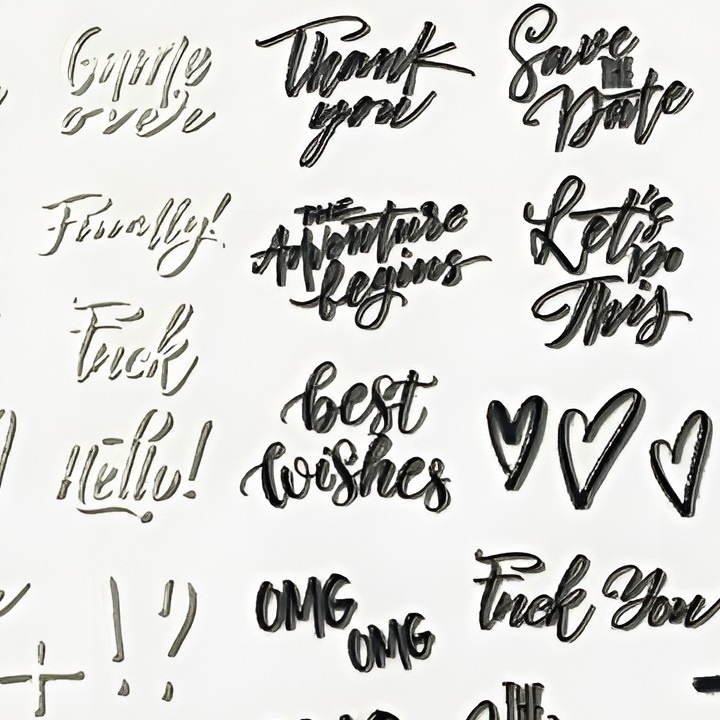 Game
over
Thank
you
Save
THE
Date
Finally!
THE
Adventure
begins
Let's
Do
This
Fuck
Hello!
best
wishes
! ?
+
OMG
OMG
Fuck You
THE